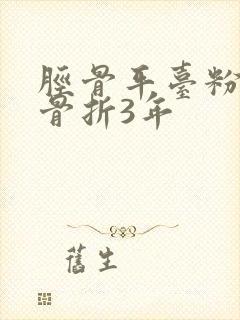 脛骨平臺粉
骨折3年
舊生